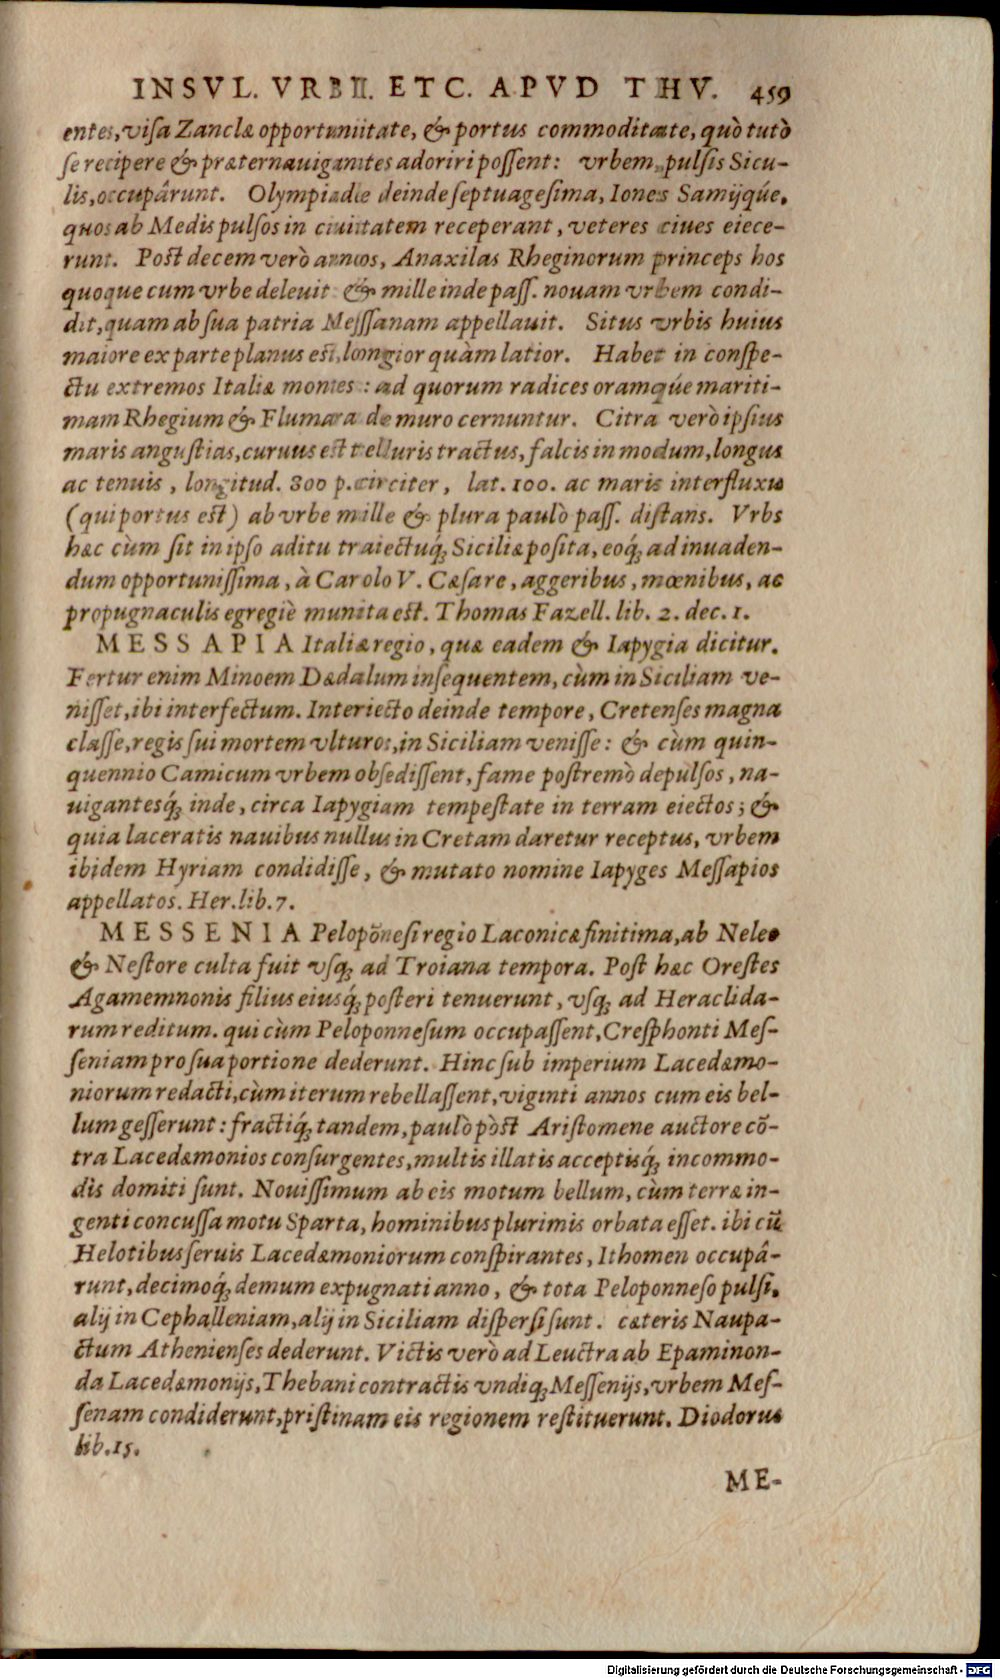 INSVL. VRBII. ETC. APVD THV. 459
entes, visa Zanclæ opportunitate, & portus commoditate, quò tutò
se recipere & præternauigantes adoriri possent: vrbem, pulsis Sicu-
lis, occupârunt. Olympiade deinde septuagesima, Iones Samijq́ue,
quos ab Medis pulsos in ciuitatem receperant, veteres ciues eiece-
runt. Post decem verò annos, Anaxilas Rheginorum princeps hos
quoque cum vrbe deleuit & mille inde pass. nouam vrbem condi-
dit, quam ab sua patria Messanam appellauit. Situs vrbis huius
maiore ex parte planus est, longior quàm latior. Habet in conspe-
ctu extremos Italiæ montes: ad quorum radices oramq́ue mariti-
mam Rhegium & Flumara de muro cernuntur. Citra verò ipsius
maris angustias, curuus est telluris tractus, falcis in modum, longus
ac tenuis, longitud. 800 p. circiter, lat. 100. ac maris interfluxu
(qui portus est) ab vrbe mille & plura paulò pass. distans. Vrbs
hæc cùm sit in ipso aditu traiectuq́; Siciliæ posita, eoq́; ad inuaden-
dum opportunissima, à Carolo V. Cæsare, aggeribus, mœnibus, ac
propugnaculis egregiè munita est. Thomas Fazell. lib. 2. dec. 1.
MESSAPIA Italiæ regio, quæ eadem & Iapygia dicitur.
Fertur enim Minoem Dædalum insequentem, cùm in Siciliam ve-
nisset, ibi interfectum. Interiecto deinde tempore, Cretenses magna
classe, regis sui mortem vlturos, in Siciliam venisse: & cùm quin-
quennio Camicum vrbem obsedissent, fame postremò depulsos, na-
uigantesq́; inde, circa Iapygiam tempestate in terram eiectos; &
quia laceratis nauibus nullus in Cretam daretur receptus, vrbem
ibidem Hyriam condidisse, & mutato nomine Iapyges Messapios
appellatos. Her. lib. 7.
MESSENIA Pelopõnesi regio Laconicæ finitima, ab Neleo
& Nestore culta fuit vsq; ad Troiana tempora. Post hæc Orestes
Agamemnonis filius eiusq́; posteri tenuerunt, vsq; ad Heraclida-
rum reditum. qui cùm Peloponnesum occupassent, Cresphonti Mes-
seniam pro sua portione dederunt. Hinc sub imperium Lacedæmo-
niorum redacti, cùm iterum rebellassent, viginti annos cum eis bel-
lum gesserunt: fractiq́; tandem, paulò pòst Aristomene auctore cõ-
tra Lacedæmonios consurgentes, multis illatis acceptisq́; incommo-
dis domiti sunt. Nouissimum ab eis motum bellum, cùm terræ in-
genti concussa motu Sparta, hominibus plurimis orbata esset. ibi cũ
Helotibus seruis Lacedæmoniorum conspirantes, Ithomen occupâ-
runt, decimoq́; demum expugnati anno, & tota Peloponneso pulsi,
alij in Cephalleniam, alij in Siciliam dispersi sunt. cæteris Naupa-
ctum Athenienses dederunt. Victis verò ad Leuctra ab Epaminon-
da Lacedæmonijs, Thebani contractis vndiq; Messenijs, vrbem Mes-
senam condiderunt, pristinam eis regionem restituerunt. Diodorus
lib. 15.
ME-
Digitalisierung gefördert durch die Deutsche Forschungsgemeinschaft - DFG